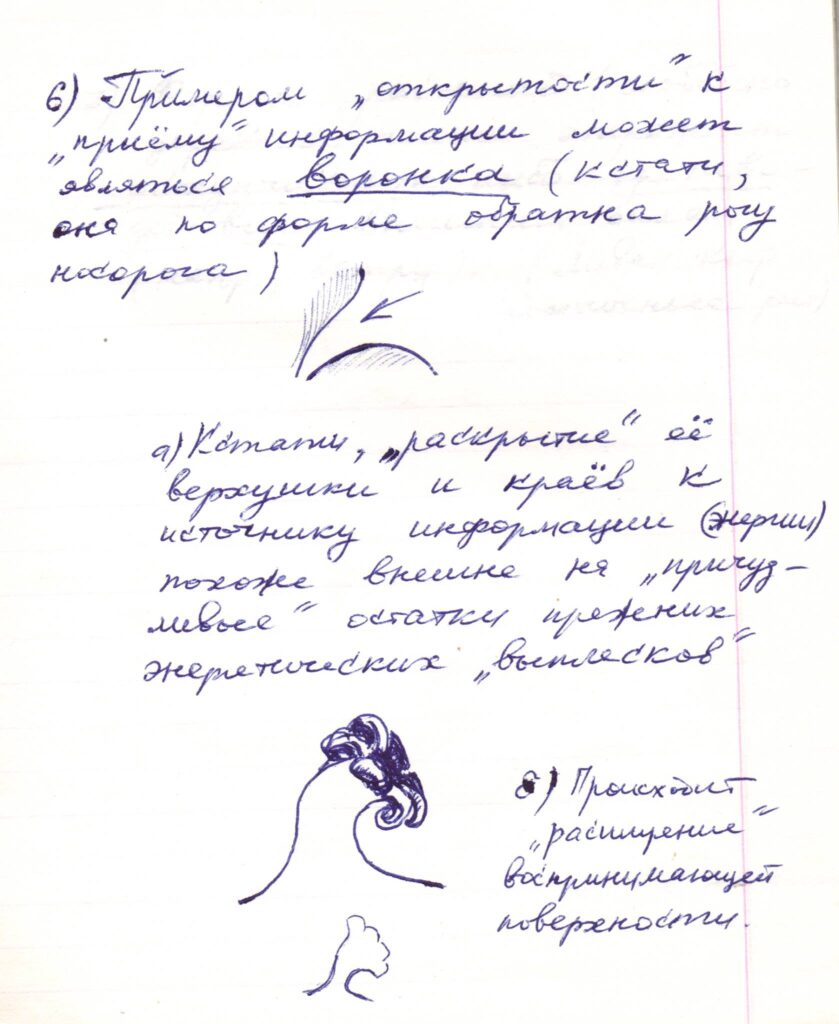 6) Примером „открытости" к
„приёму" информации может
являться воронка (кстати,
она по форме обратна рогу
носорога)
а) Кстати, „раскрытие" её
верхушки и краёв к
источнику информации (энергии)
похоже внешне на „причуд-
ливые" остатки прежних
энергетических „выплесков"
б) Происходит
„расширение"
воспринимающей
поверхности.